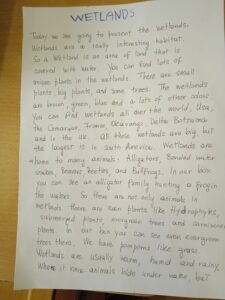 WETLANDS
Today we are going to present the wetlands.
Wetlands are a really interesting habitat.
So a Wetland is an area of land that is
covered with water. You can find lots of
unique plants in the wetlands. There are small
plants big plants, and some trees. The wetlands
are brown, green, blue and a lots of other colour
You can find wetlands all over the world, Usa,
the Camargue, France, Okavango, Delta Botswana
and in the uk. All these wetlands are big, but
the largest is in south America. Wetlands are
home to many animals: Alligators, Banded water
snakes, Beavers, beetles, and Bullfrogs. In our box
you can see an alligator family hunting a frog in
the water. So there are not only animals in
wetlands there are even plants like Hydrophytes,
submerged plants, evergreen trees and carnivorous
plants. In our box you can see even evergreen
trees there. We have pompoms like grass.
Wetlands are usually warm, humid and rainy.
When it rains animals hide under water, but